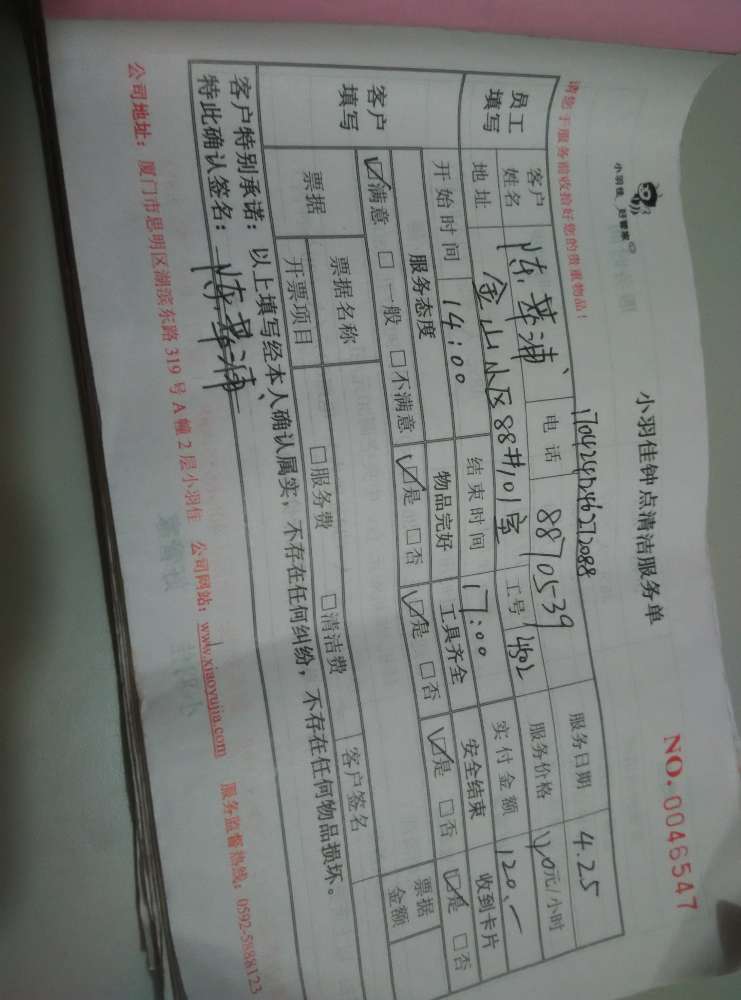 小羽佳 好管家
小羽佳钟点清洁服务单
NO. 0046547
请您于服务前收拾好您的贵重物品！
1704242462712088
员工填写 客户姓名 陈 电话 8870539 服务日期 4.25
地址 金山小区88#101室 工号 1402 服务价格 元/小时
开始时间 14:00 结束时间 17:00 实付金额 120.-
客户填写 服务态度 物品完好 工具齐全 安全结束 收到卡片
☑满意 □一般 □不满意 ☑是 □否 ☑是 □否 ☑是 □否 ☑是 □否
票据 票据名称 □服务费 □清洁费 客户签名 票据金额
开票项目
客户特别承诺：以上填写经本人确认属实，不存在任何纠纷，不存在任何物品损坏。
特此确认签名：陈
公司地址：厦门市思明区湖滨东路319号A幢2层小羽佳 公司网站：www.xiaoyujia.com 服务监督热线：0592-5888123